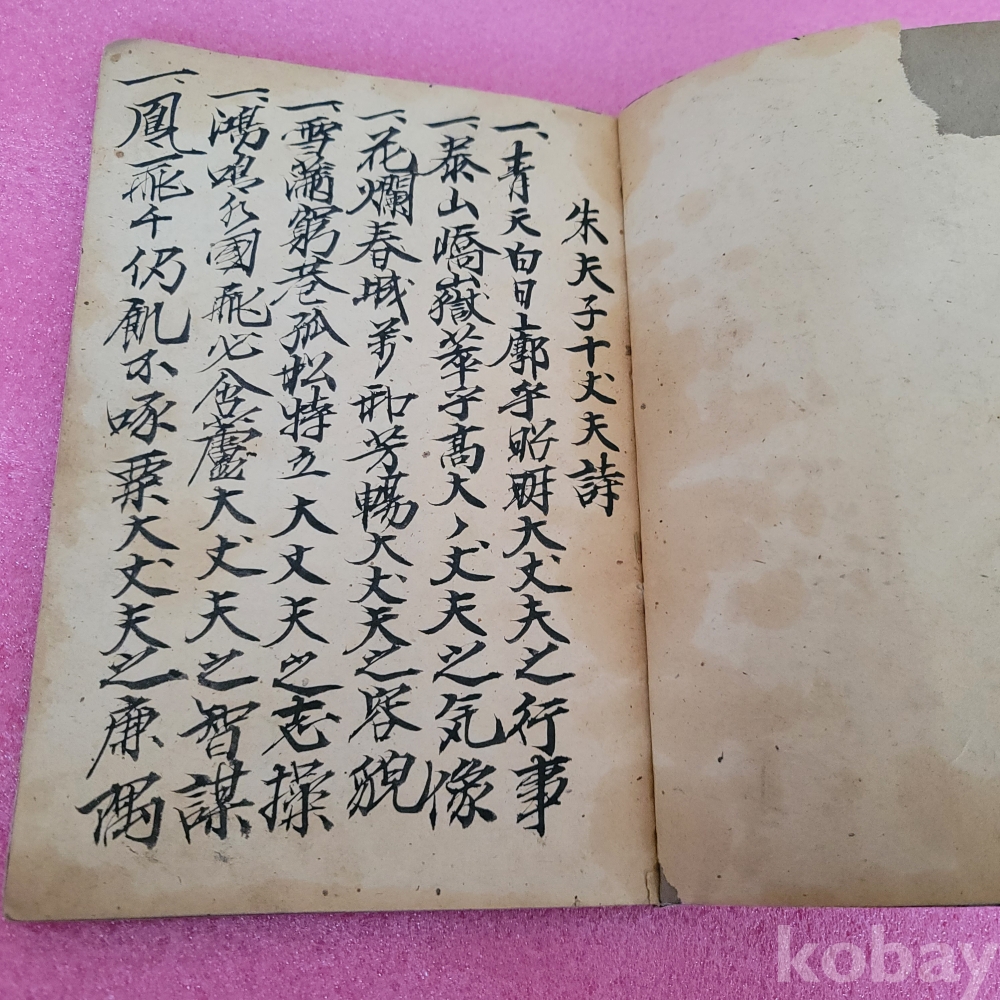 朱夫子十丈夫詩
一、青天白日廓乎昭明大丈夫之行事
一、泰山嶠嶽萃乎高大丶丈夫之気像
一、花爛春城萬和芳暢大丈夫之容貌
一、雪滿窮巷孤松特立大丈夫之志操
一、鴻鳴九國飛必含蘆大丈夫之智謀
一、鳳飛千仞飢不啄粟大丈夫之廉隅
kobay